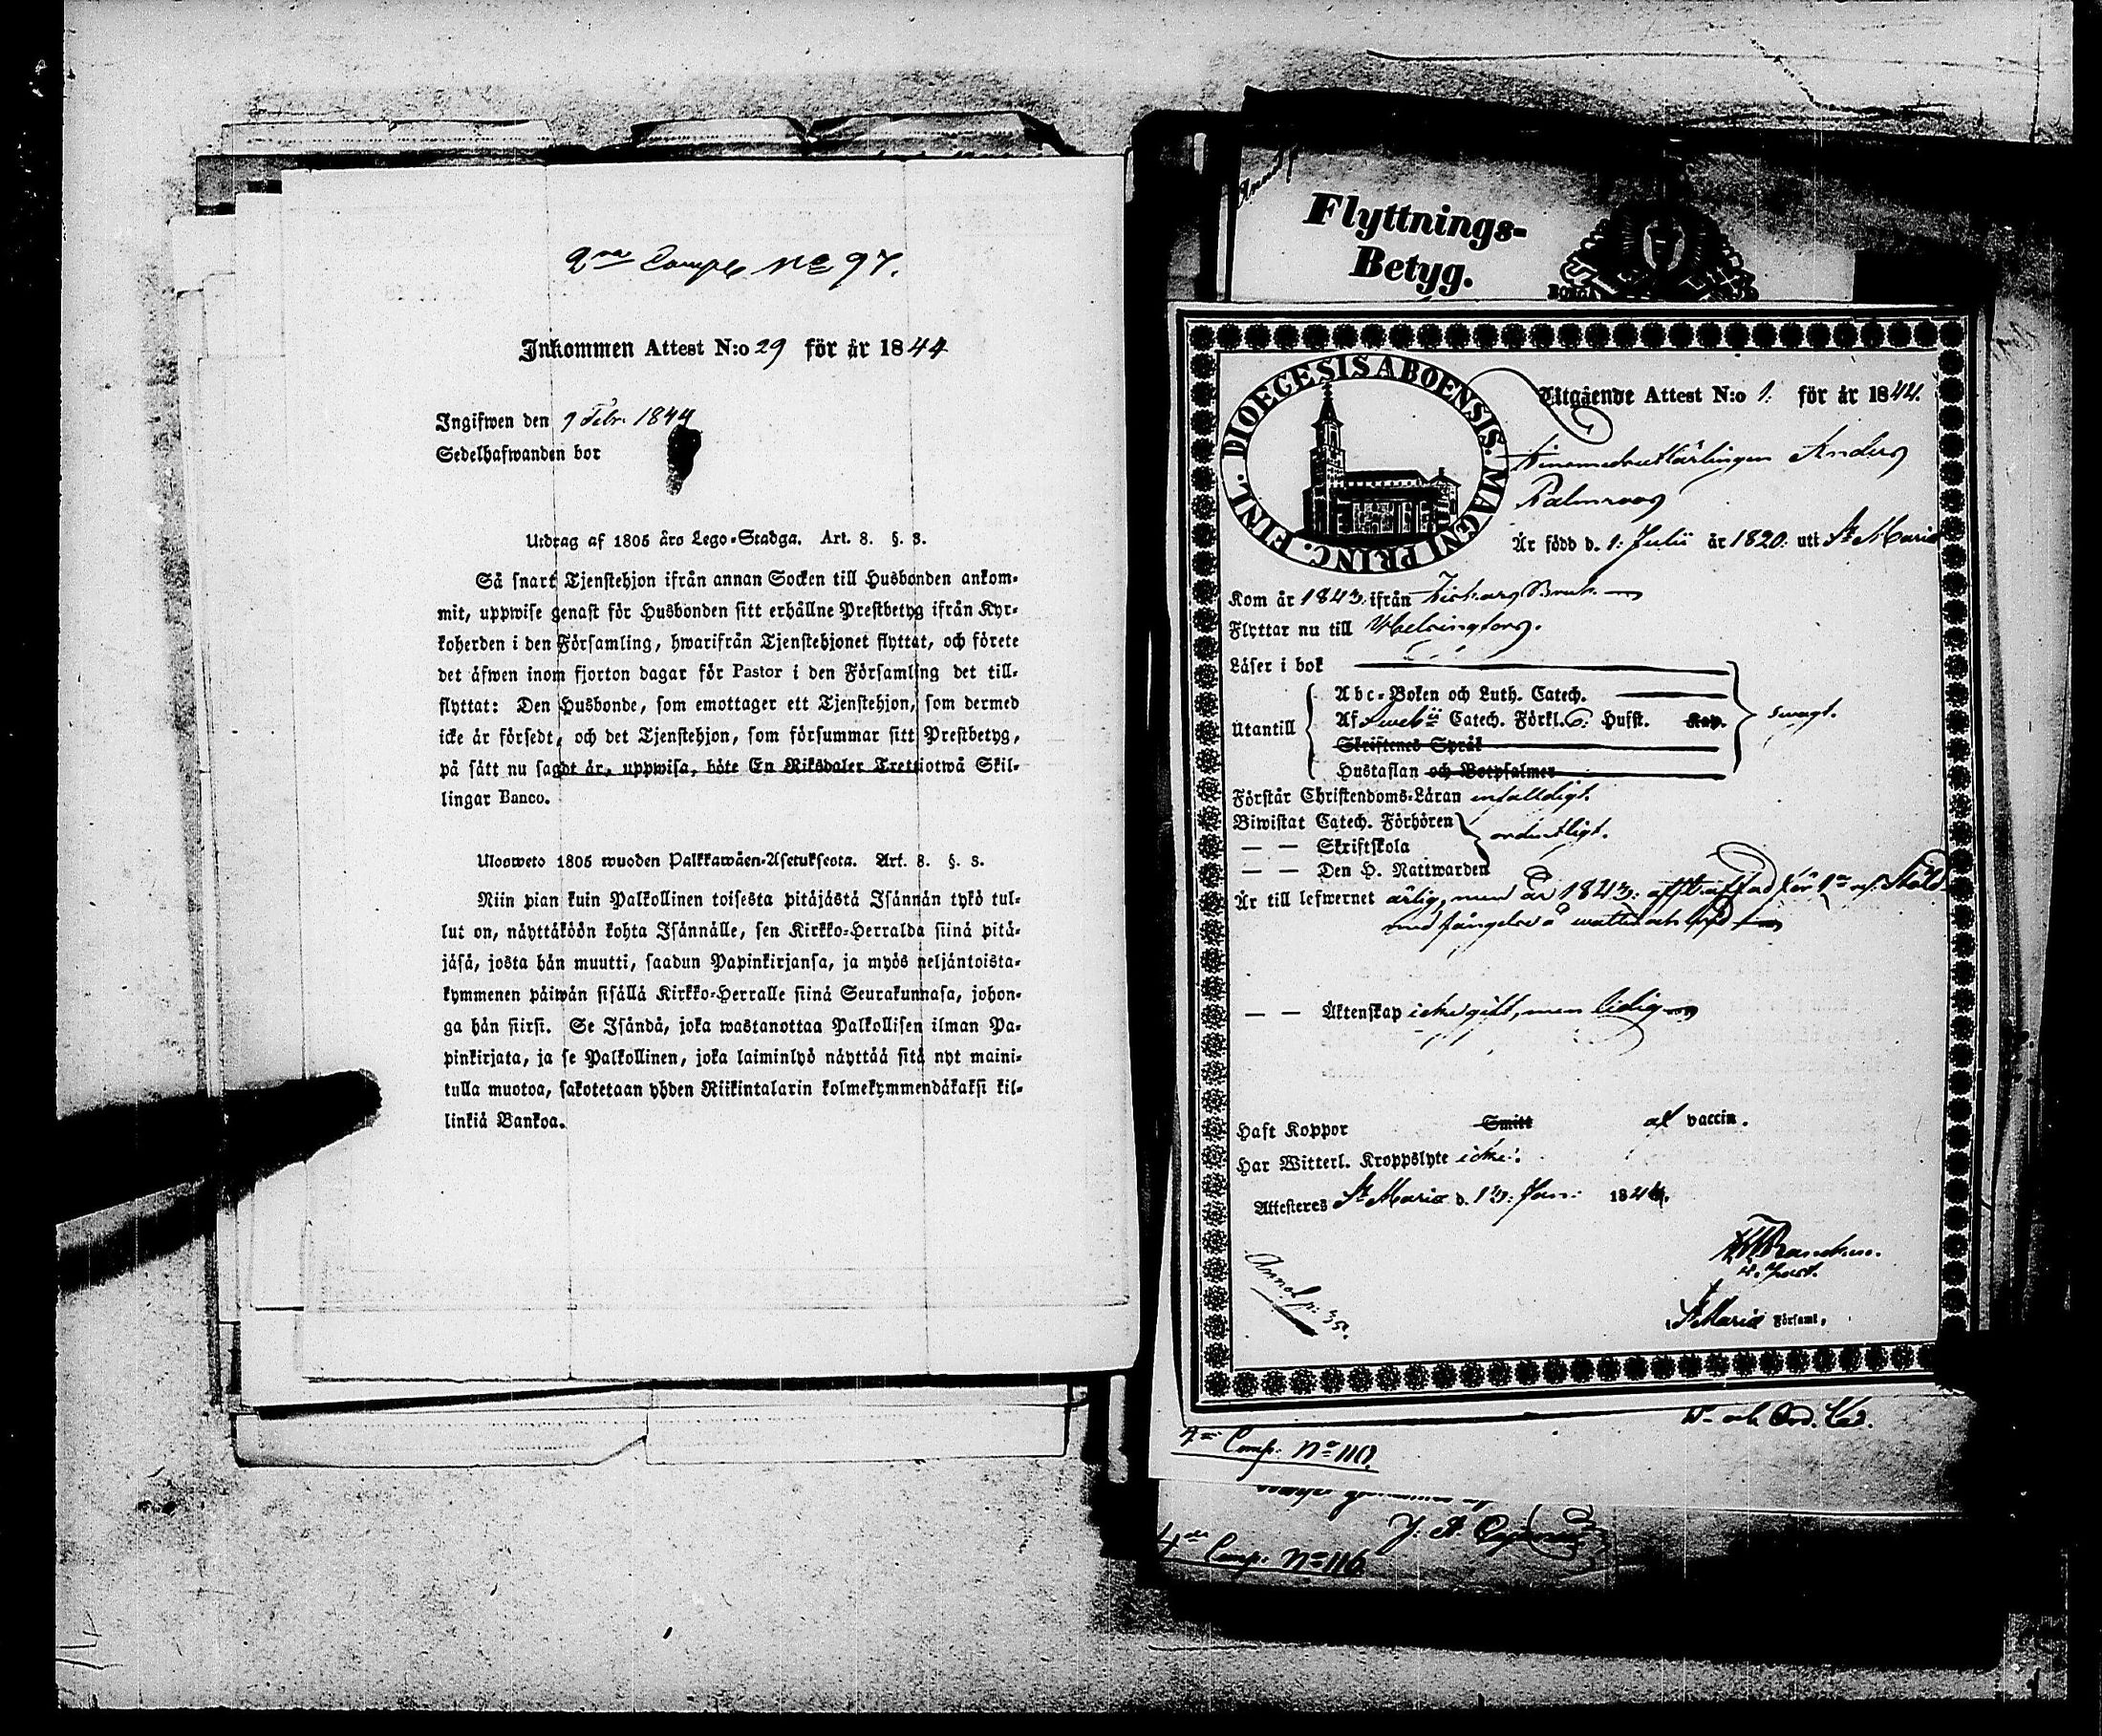 2ra Comp. No 97.
Inkommen Attest N:o 29 för år 1844
Ingifwen den 9 Febr. 1844
Sedelhafwanden bor
Utdrag af 1805 års Lego-Stadga. Art. 8. §. 3.
Så snart Tjenstehjon ifrån annan Socken till Husbonden ankom-
mit, uppwise genast för Husbonden sitt erhållne Prestbetyg ifrån Kyr-
koherden i den Församling, hwarifrån Tjenstehjonet flyttat, och förete
det äfwen inom fjorton dagar för Pastor i den Församling det till-
flyttat: Den Husbonde, som emottager ett Tjenstehjon, som dermed
icke är försedt, och det Tjenstehjon, som försummar sitt Prestbetyg,
på sätt nu sagdt är, uppwisa, böte En Riksdaler Trettiotwå Skil-
lingar Banco.
Ulosweto 1805 wuoden Palkkawäen-Asetuksesta. Art. 8. §. 3.
Niin pian kuin Palkollinen toisesta pitäjästä Isännän tykö tul-
lut on, näyttäköön kohta Isännälle, sen Kirkko-Herralda siinä pitä-
jäsä, josta hän muutti, saadun Papinkirjansa, ja myös neljäntoista-
kymmenen päiwän sisällä Kirkko-Herralle siinä Seurakunnasa, johon-
ga hän siirsi. Se Isändä, joka wastanottaa Palkollisen ilman Pa-
pinkirjata, ja se Palkollinen, joka laiminlyö näyttää sitä nyt maini-
tulla muotoa, sakotetaan yhden Riikintalarin kolmekymmendäkaksi kil-
linkiä Bankoa.
Flyttnings-
Betyg.
DIOECESIS ABOENSIS. MAGNI PRINC. FINL.
Utgående Attest N:o 1. för år 1844.
Anders
Palmroos
Är född d. 1: Julii år 1820. uti St Mariæ
Kom år 1843. ifrån Bruk.
Flyttar nu till Helsingfors.
Läser i bok
Abc-Boken och Luth. Catech.
Utantill Af Svebii Catech. Förkl. 6: Hufst. Kap. swagt.
Skriftenes Språk
Hustaflan och Botpsalmer
Förstår Christendoms-Läran enfalldigt.
Biwistat Catech. Förhören
— — Skriftskola ordentligt.
— — Den H. Nattwarden
Är till lefwernet ärlig, men år 1843. afstraffad för 1a ug. Stöld
med fängelse å watten och bröd
— — Äktenskap icke gift, men ledig
Haft Koppor Smitt af vaccin.
Har Witterl. Kroppslyte icke.
Attesteres St Mariæ d. 13: Jan: 1844.
St Mariæ Församl,
Annot. p: 35.
W. och Ord. Led.
Comp. No 110.
4de Comp. No 116.